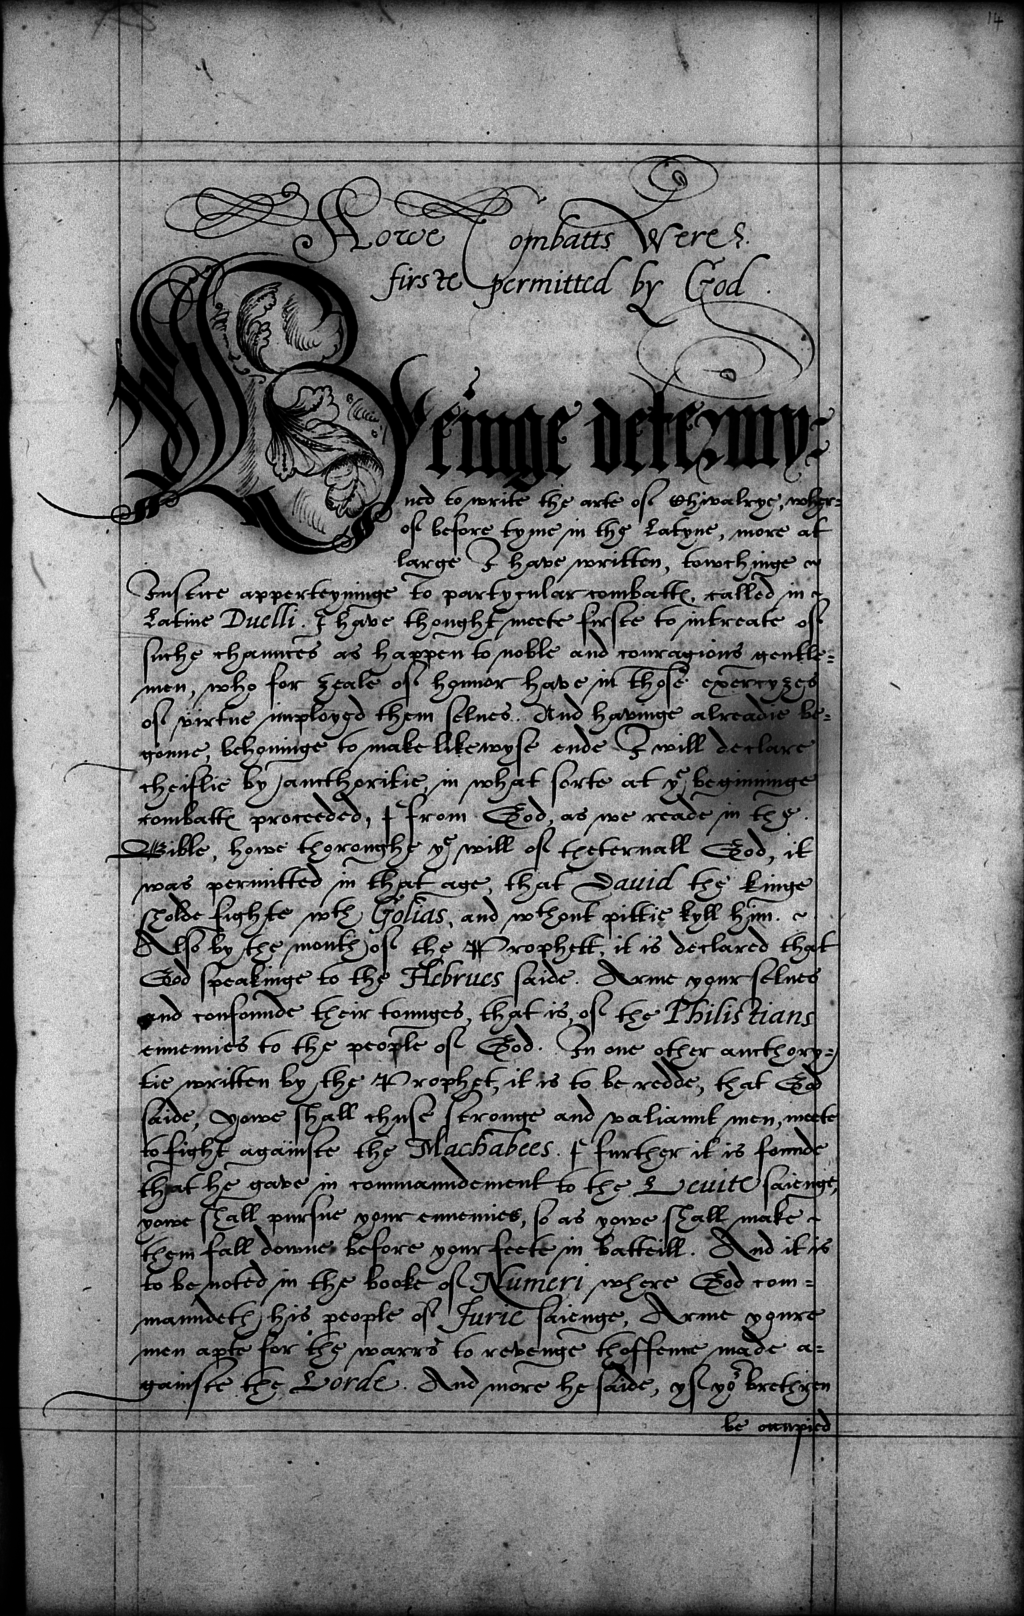 14
Howe Combatts Weere
firste permitted by God.
Beinge determy-
ned to write the arte of Chivalrye, wher=
of before tyme in the Latyne, more at
large I have written, towchinge
Iustice apperteyninge to partycular combatts, called in
Latine Duelli. I have thought meete firste to intreate of
suche chaunces as happen to noble and couragious gentle=
men, who for zeale of honnor have in those exercyzes
of virtue imployed them selues. And havinge alreadie be=
gonne, behoninge to make likewyse ende I will declare
cheiflie by aucthoritie, in what sorte at ye beginninge
combatts proceeded, & from God, as we reade in the
Bible, howe thoroughe ye will of theternall God, it
was permitted in that age, that Dauid the kinge
sholde fighte wth Golias, and wthout pittie kyll him.
Also by the mouth of the Prophett, it is declared that
God speakinge to the Hebrues saide. Arme your selues
and confounde their tounges, that is, of the Philistians
ennemies to the people of God. In one other aucthory-
tie written by the Prophet, it is to be redde, that God
saide, yowe shall chuse stronge and valiaunt men, meete
to fight againste the Machabees. & further it is founde
that he gave in commaundement to the Leuite saienge,
yowe shall pursue your ennemies, so as yowe shall make
them fall downe before your feete in batteill. And it is
to be noted in the booke of Numeri where God com=
maundeth his people of Jurie saienge, Arme youre
men apte for the warrs to revenge thoffence made a=
gainste the Lorde. And more he saide, yf yor brethren
be occupied